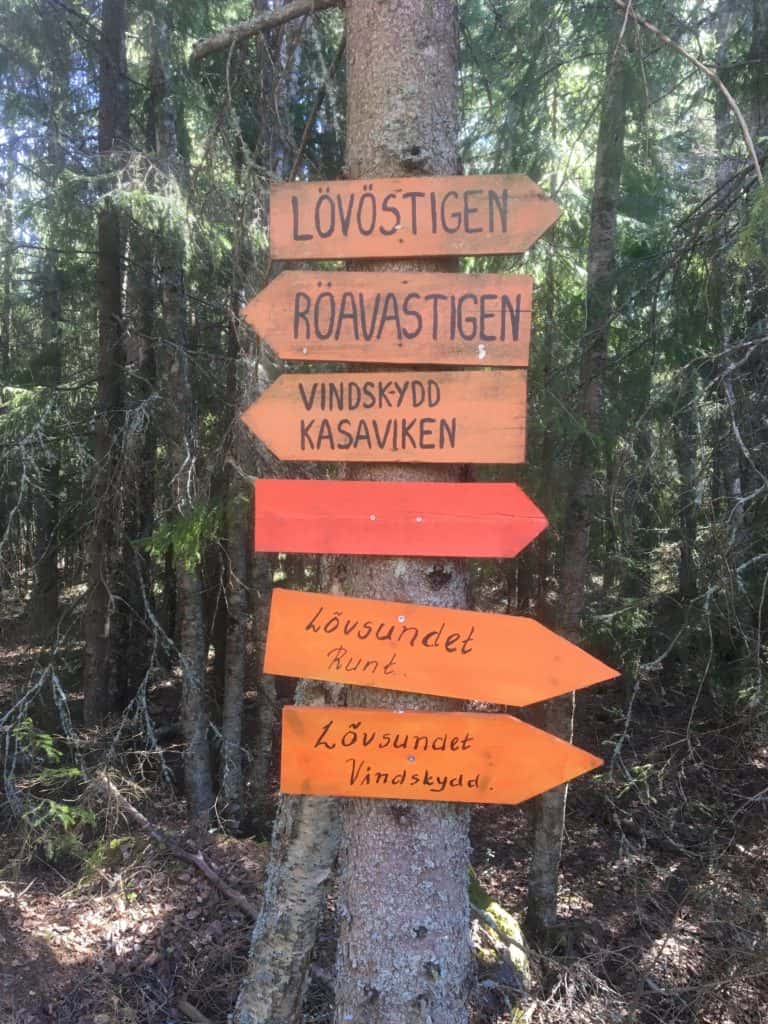 LÖVÖSTIGEN
RÖAVASTIGEN
VINDSKYDD
KASAVIKEN
Lövsundet
Runt.
Lövsundet
Vindskydd.